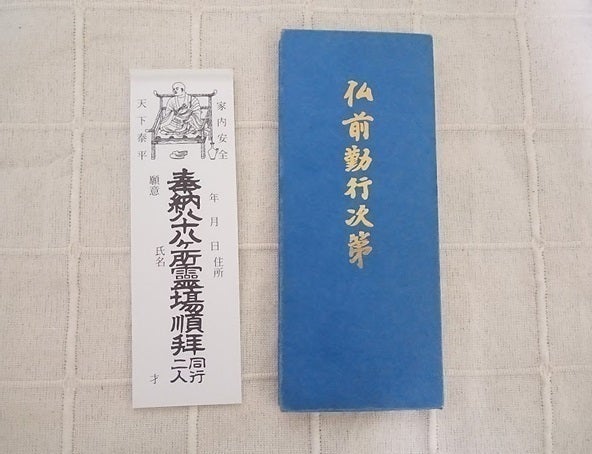 家内安全
天下泰平
奉納八十八ヶ所霊場順拝
同行二人
願意
年 月 日
住所
氏名
才
仏前勤行次第